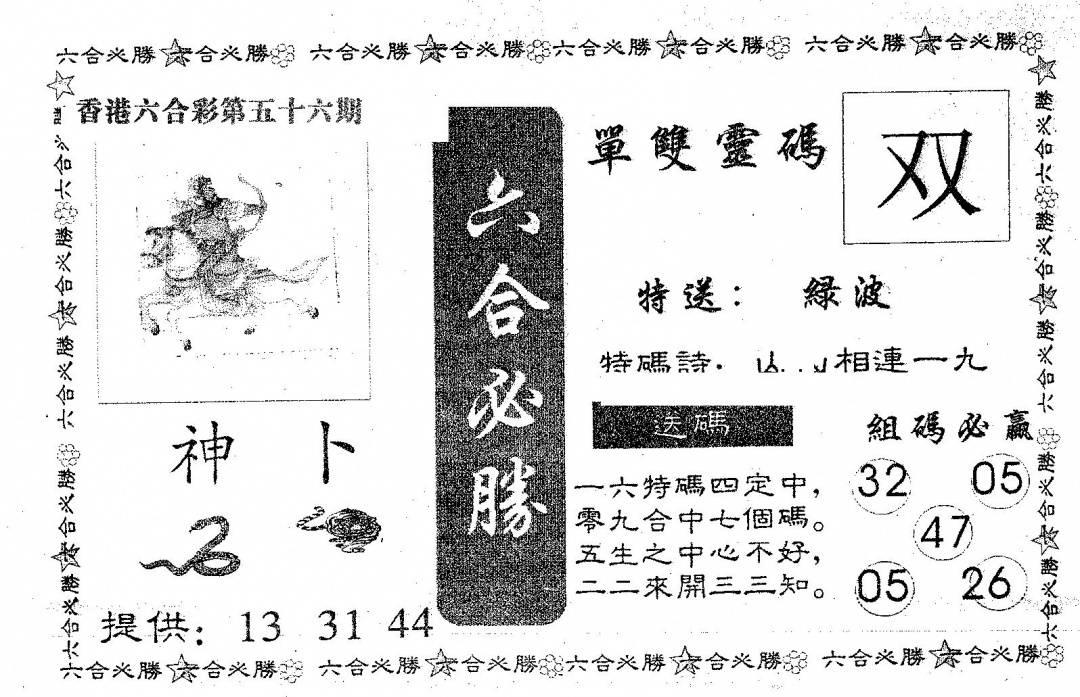 六合必勝 六合必勝 六合必勝 六合必勝 六合必勝 六合必勝 六合必勝 六合必勝
香港六合彩第五十六期
神卜
提供：13 31 44
六合必勝
單雙靈碼
双
特送：綠波
特碼詩 相連一九
送碼
一六特碼四定中，
零九合中七個碼。
五生之中心不好，
二二來開三三知。
組碼必贏
32 05
47
05 26
六合必勝 六合必勝 六合必勝 六合必勝 六合必勝 六合必勝 六合必勝 六合必勝